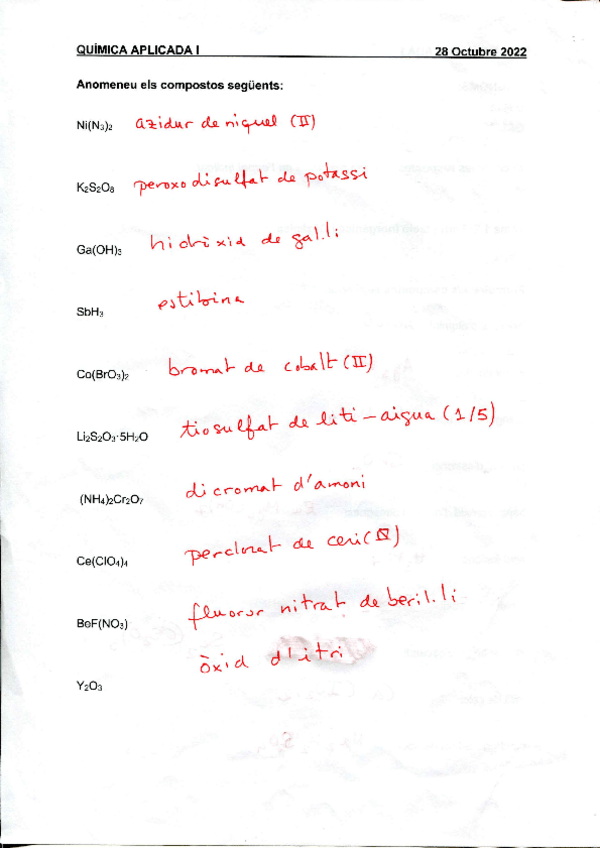 QUÍMICA APLICADA I 28 Octubre 2022
Anomeneu els compostos següents:
Ni(N₃)₂ azidur de niquel (II)
K₂S₂O₈ peroxodisulfat de potassi
Ga(OH)₃ hidròxid de gal.li
SbH₃ estibina
Co(BrO₃)₂ bromat de cobalt (II)
Li₂S₂O₃·5H₂O tiosulfat de liti – aigua (1/5)
(NH₄)₂Cr₂O₇ dicromat d'amoni
Ce(ClO₄)₄ perclorat de ceri (IV)
BeF(NO₃) fluorur nitrat de beril.li
Y₂O₃ òxid d'itri